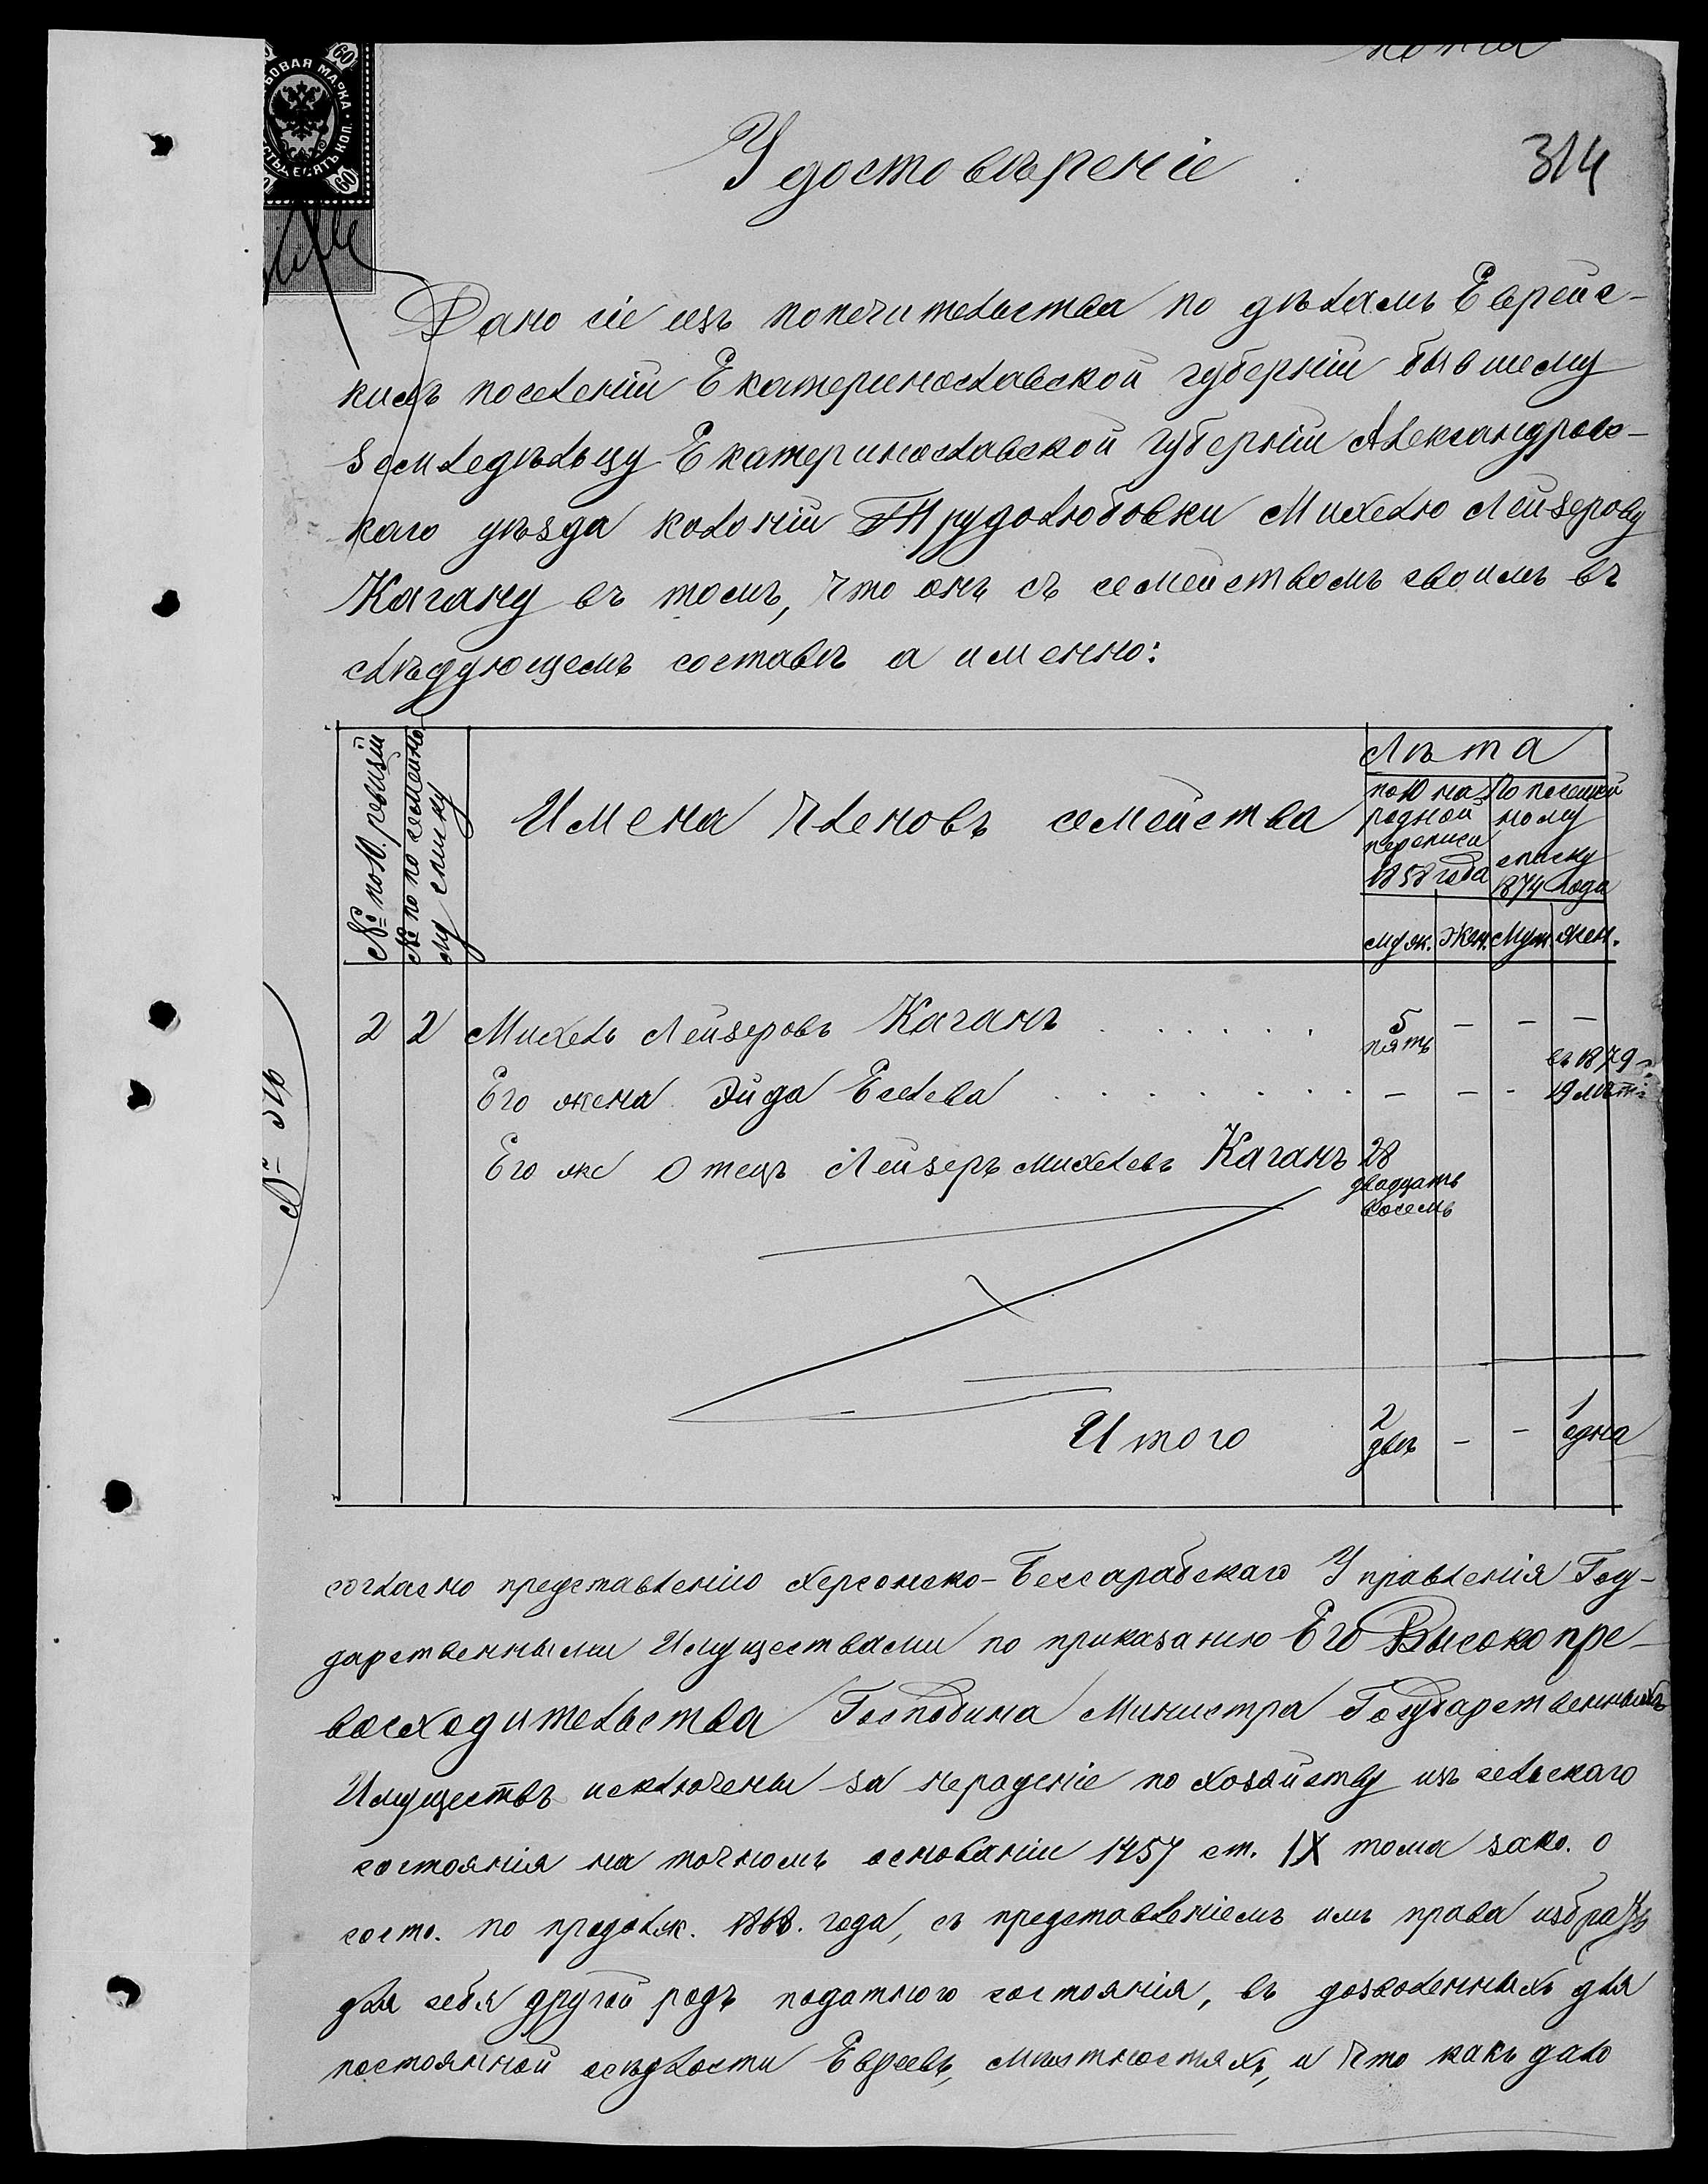 копія
60 60
БОВАЯ МАРКА КОП.
СТЬДЕСЯТЪ
60
Удостовѣреніе
314
Дано сіе изъ попечительства по дѣламъ Еврейс-
кихъ поселеній Екатеринославской губерніи бывшему
земледѣльцу Екатеринославской губерніи Александровс-
каго уѣзда колоніи Трудолюбовки Михелю Лейзерову
Кагану въ томъ, что онъ съ семействомъ своимъ въ
слѣдующемъ составѣ а именно:
№ по 10. ревизіи
№ по посемейно
му списку
Имена членовъ семейства
Лѣта
по 10 на-
родной
переписи
1858 года
По посемей
ному
списку
1874 года
Муж. Жен. Муж. Жен.
2 2 Михель Лейзеровъ Каганъ . . . . . . 5 - - -
пять
въ 1879 г.
Его жена Эйда Еселева . . . . . . . - - - 19 лѣтъ
Его же Отецъ Лейзеръ Михелевъ Каганъ 28
двадцать
восемь
№ 516
Итого 2 - - 1
двѣ одна
согласно представленію Херсонско-Бессарабскаго Управленія Госу-
дарственными Имуществами по приказанію Его Высокопре-
восходительства Господина Министра Государственныхъ
Имуществъ исключены за нерадѣніе по хозяйству изъ сельскаго
состоянія на точномъ основаніи 1457 ст. IX тома зако. о
состо. по продолж. 1868. года, съ представленіемъ имъ права избрать
для себя другой родъ податного состоянія, въ дозволенныхъ для
постоянной осѣдлости Евреевъ, мѣстностяхъ, и что какъ дало